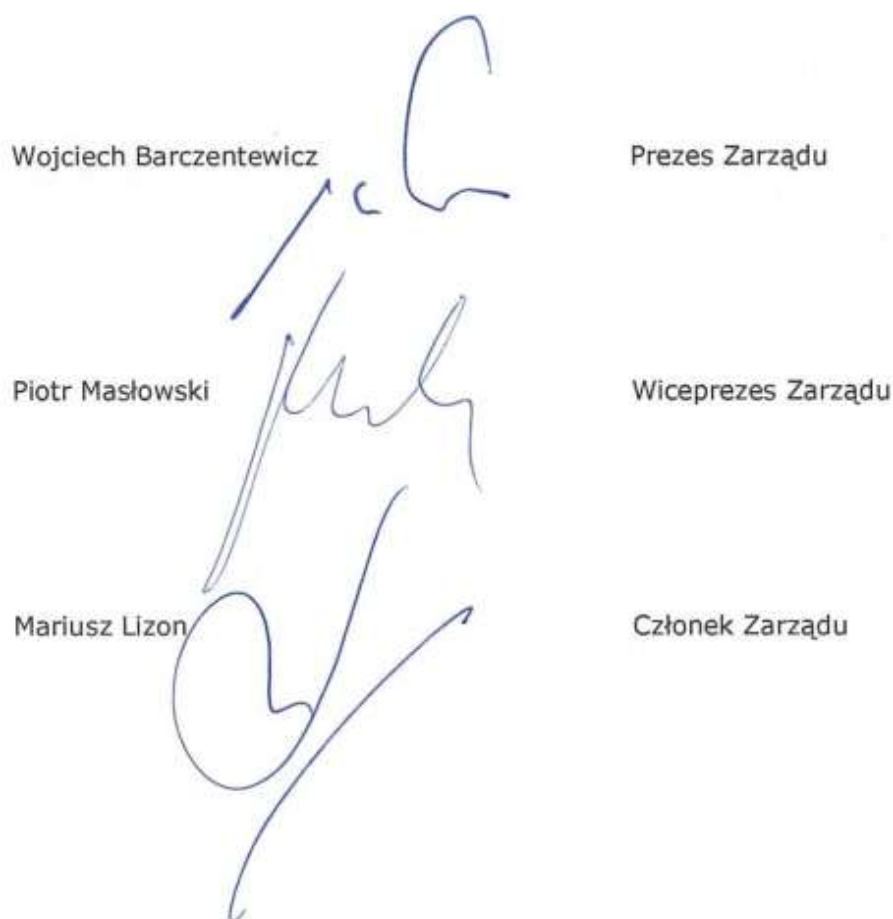 Wojciech Barczentewicz Prezes Zarządu
Piotr Masłowski Wiceprezes Zarządu
Mariusz Lizon Członek Zarządu